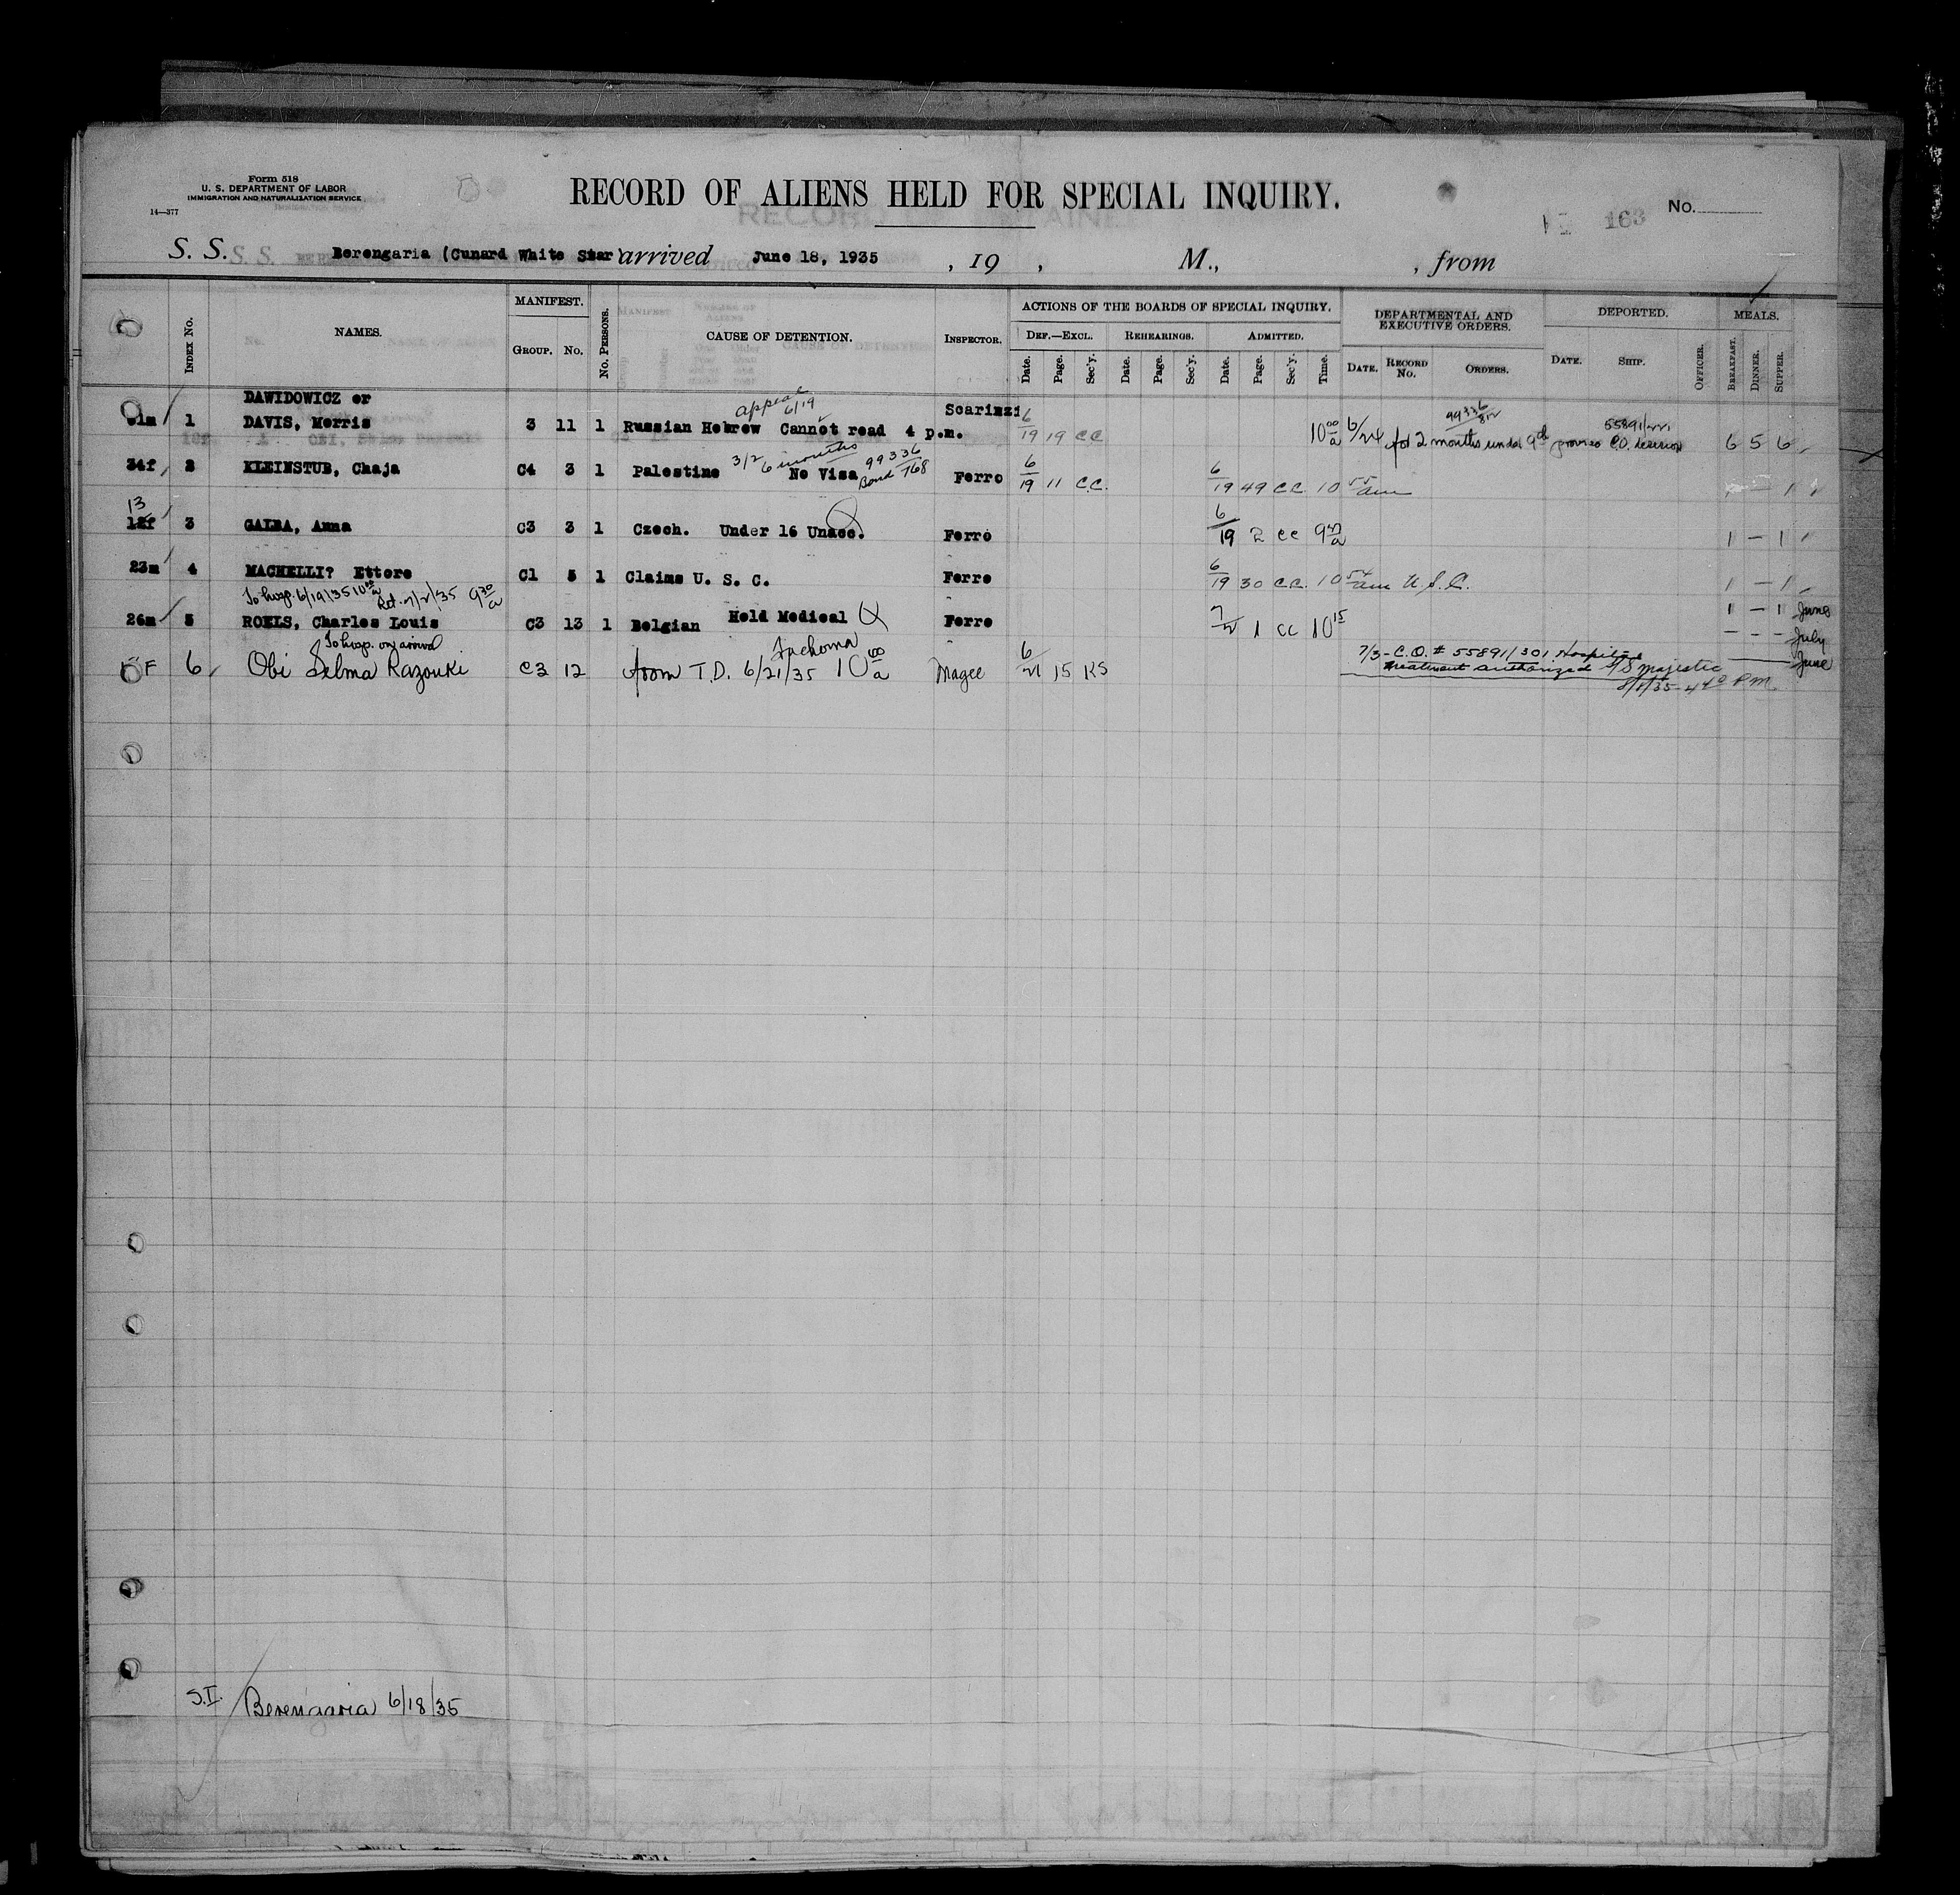 Form 518
U. S. DEPARTMENT OF LABOR
IMMIGRATION AND NATURALIZATION SERVICE
14—377
RECORD OF ALIENS HELD FOR SPECIAL INQUIRY.
No.
163
S. S. Berengaria (Cunard White Star arrived June 18, 1935 , 19 , M., , from
Index No. NAMES. MANIFEST. Group. No. No. Persons. CAUSE OF DETENTION. Inspector. ACTIONS OF THE BOARDS OF SPECIAL INQUIRY. Def.—Excl. Date. Page. Sec'y. Rehearings. Date. Page. Sec'y. Admitted. Date. Page. Sec'y. Time. DEPARTMENTAL AND EXECUTIVE ORDERS. Date. Record No. Orders. DEPORTED. Date. Ship. Officer. MEALS. Breakfast. Dinner. Supper.
DAWIDOWICZ or appeal 6/19 99336/812 55891/221
1 DAVIS, Morris 3 11 1 Russian Hebrew Cannot read 4 p.m. Scarinzi 6/19 19 CC 10 00 a 6/24 for 2 months under 9th proviso C.O. decision 6 5 6
3/2 6 months 99336/768
34f 2 KLEINSTUB, Chaja C4 3 1 Palestine No Visa Bond Ferro 6/19 11 C.C. 6/19 49 CC 10 55 am 1 — 1
13
12f 3 GALBA, Anna C3 3 1 Czech. Under 16 Unacc. Ferro 6/19 2 CC 9 1 — 1
23m 4 MACHELLI? Ettore C1 5 1 Claims U. S. C. Ferro 6/19 30 C.C. 10 54 am U.S.C. 1 — 1
To hosp. 6/19/35 10 a Ret. 7/2/35 9 30 a
26m 5 ROELS, Charles Louis C3 13 1 Belgian Held Medical Ferro 7/2 1 CC 10 15 1 — 1 June
— — — July
To hosp. on arrival Trachoma
F 6 Obi Selma Razouki C3 12 from T.D. 6/21/35 10 00 a Magee 6/21 15 KS 7/3 - C.O. # 55891/301 Hospital June
treatment authorized S/S Majestic
8/1/35 - 4 P.M.
S.I. Berengaria 6/18/35